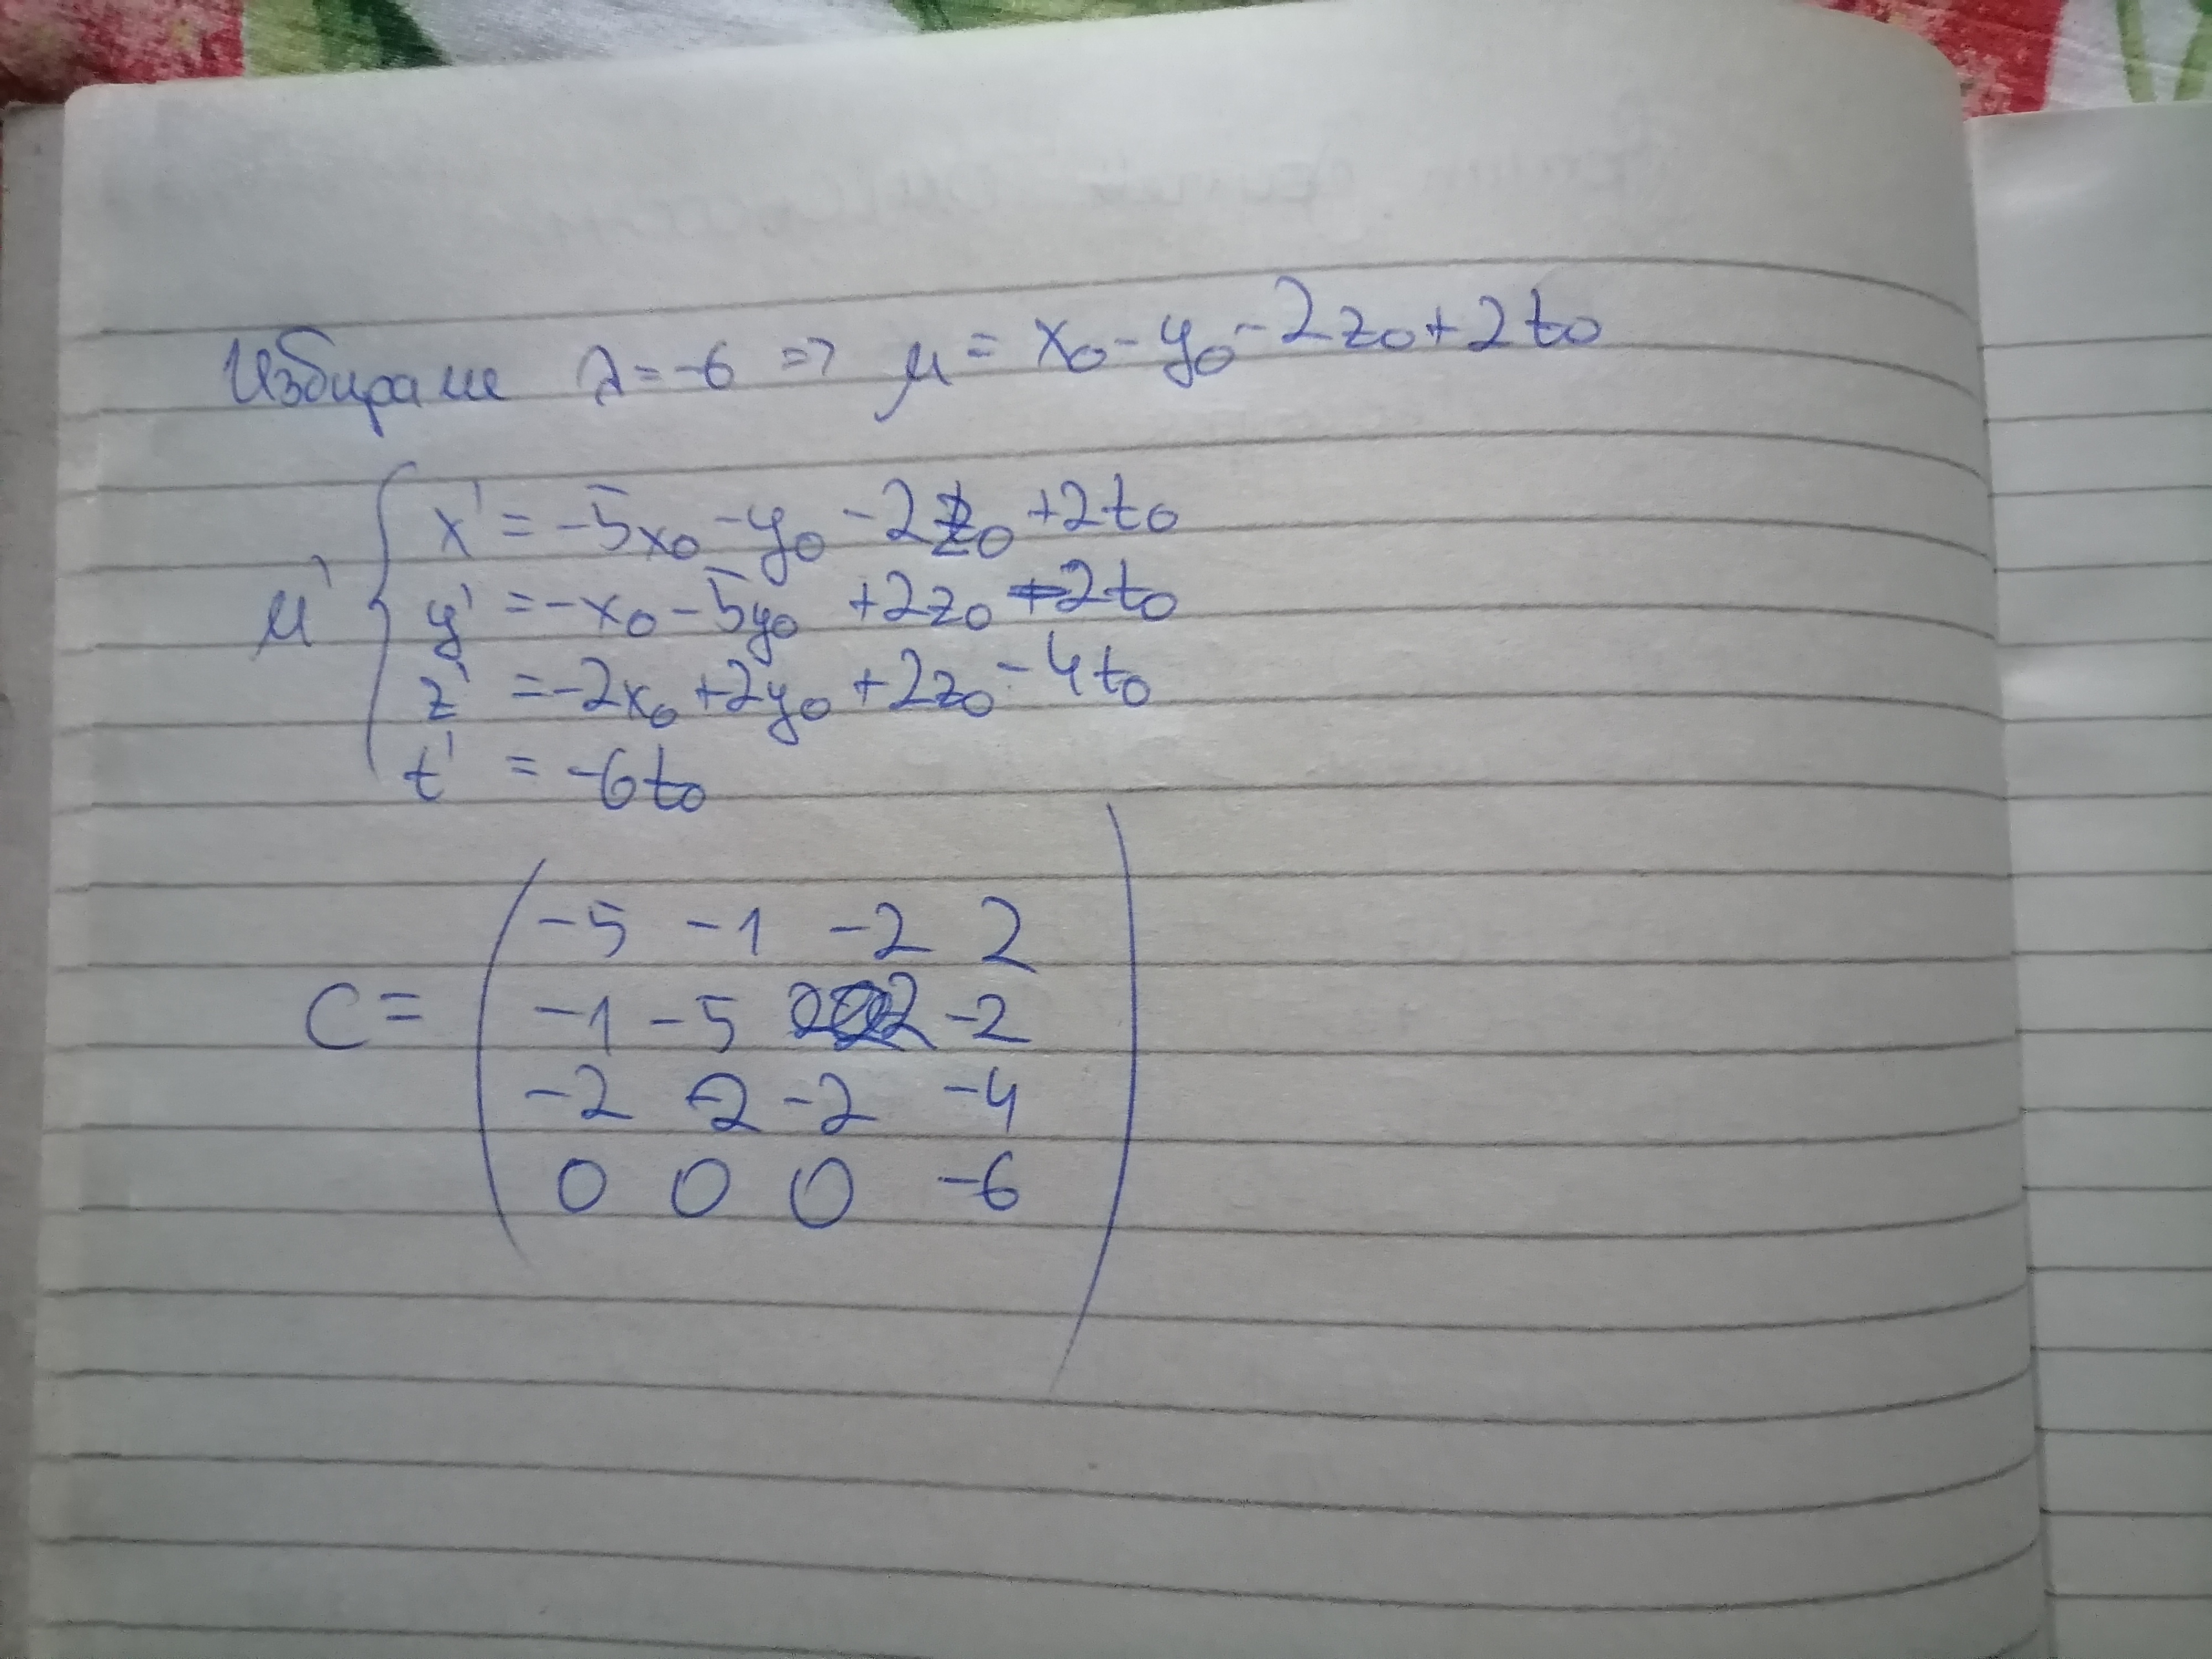 Избираме λ=-6 => μ = x₀ - y₀ - 2z₀ + 2t₀
x' = -5x₀ - y₀ - 2z₀ + 2t₀
μ' { y' = -x₀ - 5y₀ + 2z₀ - 2t₀
z' = -2x₀ + 2y₀ + 2z₀ - 4t₀
t' = -6t₀
-5 -1 -2 2
C = -1 -5 2 -2
-2 2 -2 -4
0 0 0 -6